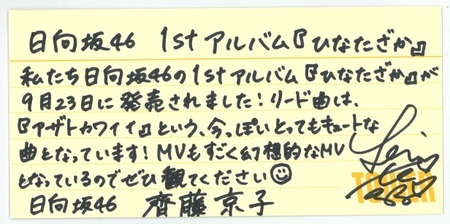 日向坂46 1stアルバム『ひなたざか』
私たち日向坂46の1stアルバム『ひなたざか』が
9月23日に発売されました!リード曲は、
『アザトカワイイ』という、今っぽいとってもキュートな
曲となっています!MVもすごく幻想的なMV
となっているのでぜひ観てください
日向坂46 齊藤京子
TOWER